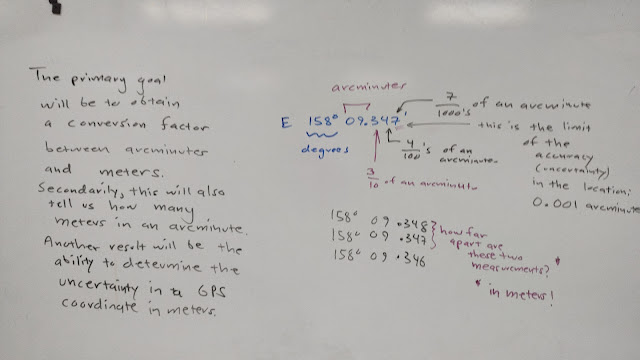 The primary goal
will be to obtain
a conversion factor
between arcminutes
and meters.
Secondarily, this will also
tell us how many
meters in an arcminute.
Another result will be the
ability to determine the
uncertainty in a GPS
coordinate in meters.
arcminutes
E 158° 09.347'
degrees
7/1000's of an arcminute
this is the limit
of the
accuracy
(uncertainty)
in the location;
0.001 arcminute
4/100's of an
arcminute
3/10 of an arcminute
158° 09.348
158° 09.347
158° 09.346
how far
apart are
these two
measurements?
* in meters!